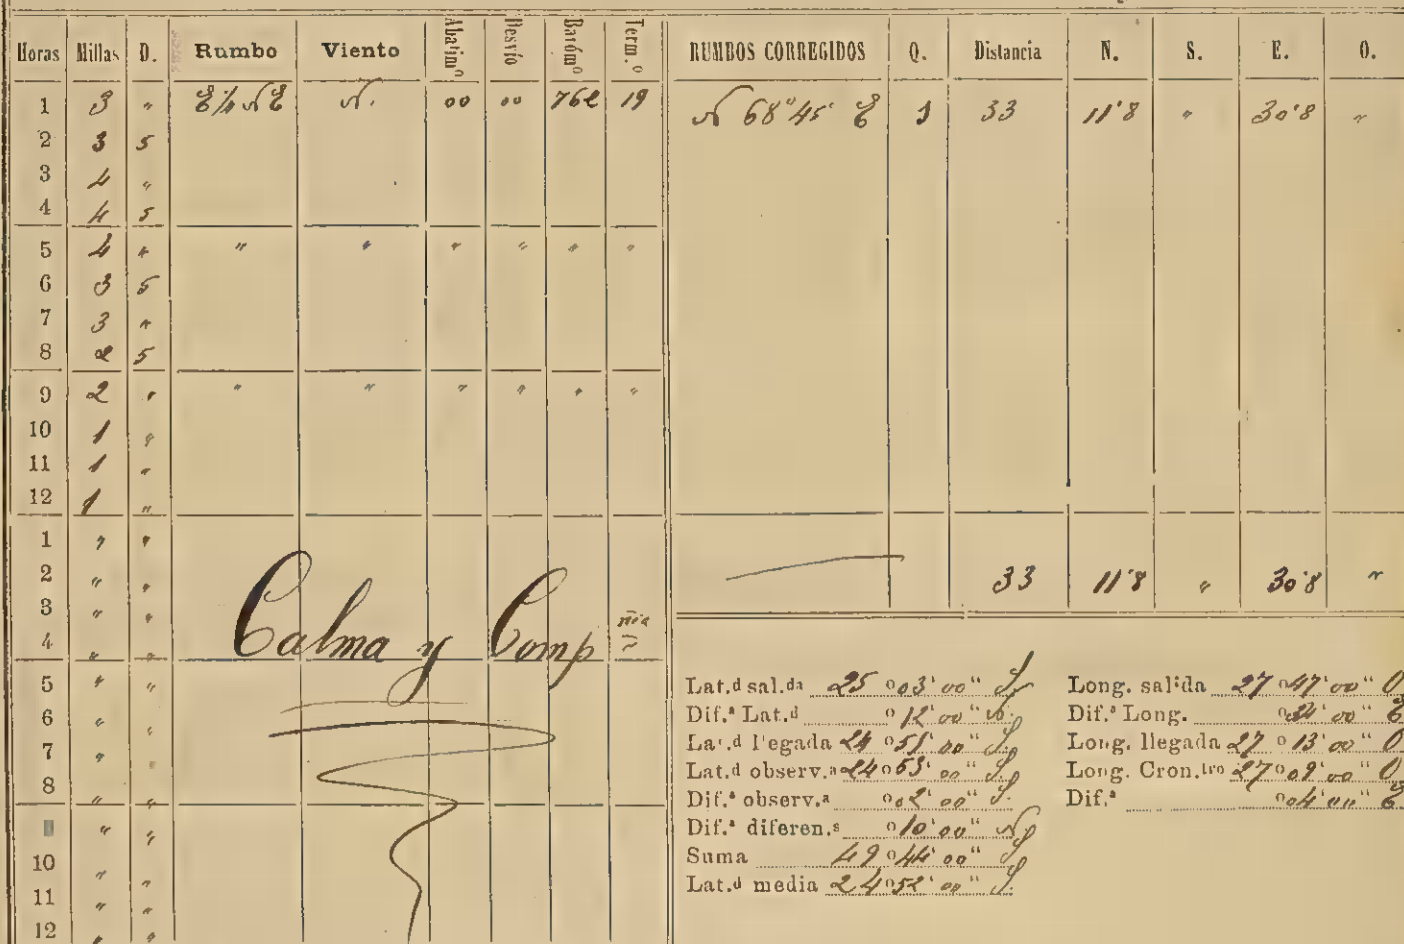 Horas Millas D. Rumbo Viento Abatim.º Desvío Baróm.º Term.º
1 3 " E¼NE N. 00 00 762 19
2 3 5
3 4 "
4 4 5
5 4 " " " " " " "
6 3 5
7 3 "
8 2 5
9 2 " " " " " " "
10 1 "
11 1 "
12 1 "
1 " "
2 " "
3 " "
4 " "
Calma y Comp ñia
5 " "
6 " "
7 " "
8 " "
" "
10 " "
11 " "
12 " "
RUMBOS CORREGIDOS Q. Distancia N. S. E. O.
N 68°45' E 33 11'8 " 30'8 "
33 11'8 " 30'8 "
Lat.d sal.da 25°03'00" S.
Dif.ª Lat.d °12'00" N.
Lat.d llegada 24°51'00" S.
Lat.d observ.ª 24°53'00" S.
Dif.ª observ.ª °02'00" S.
Dif.ª diferen.s °10'00" N
Suma 49°44'00" S
Lat.d media 24°52'00" S.
Long. salida 27°47'00" O
Dif.ª Long. °34'00" E
Long. llegada 27°13'00" O
Long. Cron.tro 27°09'00" O
Dif.ª °04'00" E